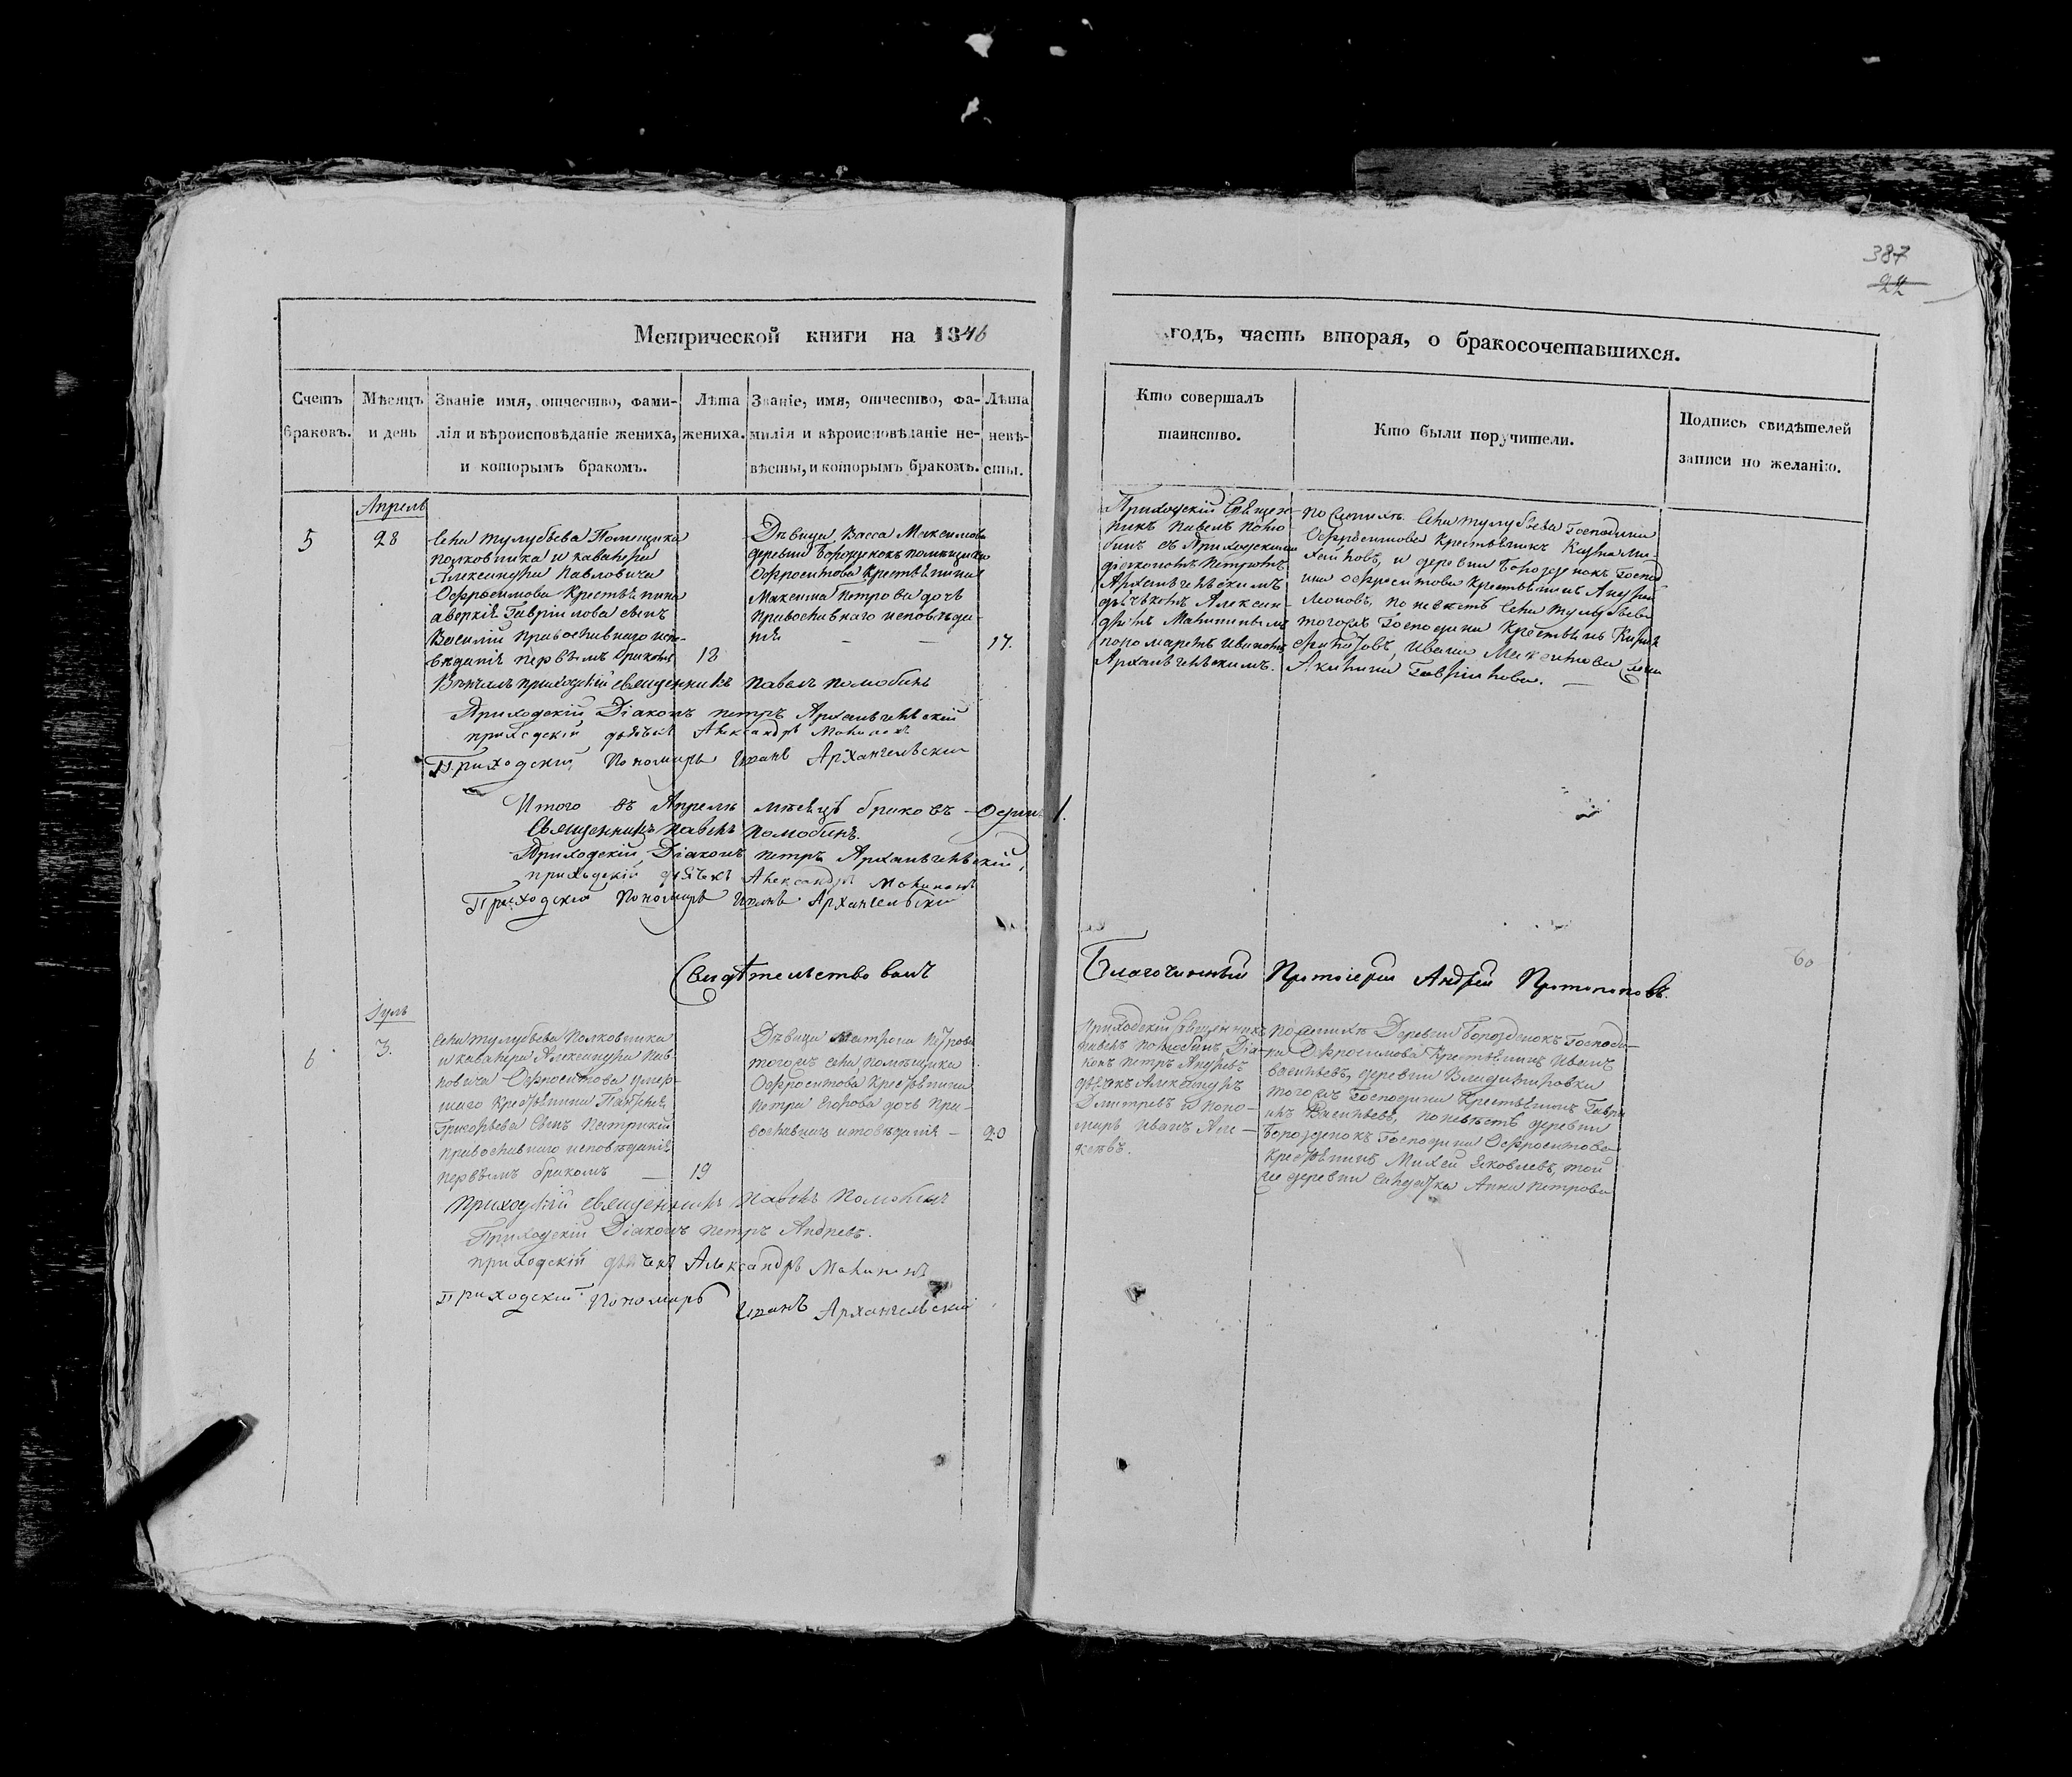 387
22
Метрической книги на 1846
годъ, часть вторая, о бракосочетавшихся.
Счетъ браковъ.
Мѣсяцъ и день
Званіе имя, отчество, фами-
лія и вѣроисповѣданіе жениха,
и которымъ бракомъ.
Лѣта
жениха.
Званіе, имя, отчество, фа-
милія и вѣроисповѣданіе не-
вѣсты, и которымъ бракомъ.
Лѣта
невѣ-
сты.
Кто совершалъ
таинство.
Кто были поручители.
Подпись свидѣтелей
записи по желанію.
Апрель
5
28
Села Тулубьева Помещика
полковника и кавалера
Александра Павловича
Офросимова Крестьянина
аверкія Гаврилова сынъ
Василій православнаго испо-
веданія первымъ бракомъ
18
Девица Васса Максимова
деревни Борозденокъ помещика
Офросимова Крестьянина
Максима Петрова дочь
православнаго исповеда-
нія
17.
Приходскій Священ-
никъ Павелъ Помо-
бинъ съ Приходскими
діакономъ Петромъ
Архангельскимъ
дьячкомъ Алексан-
дромъ Малининымъ
пономаремъ Иваномъ
Архангельскимъ.
по женихе Села Тулубьева Господина
Офросимова Крестьянинъ
и деревни Борозденокъ Господ
ина Офросимова Крестьянинъ Андрей
Леоновъ, по невесте Села Тулубьева
тогожъ Господина Крестьянинъ
Ивана Максимова
Гаврилова.
Венчалъ приходскій священникъ Павелъ Помобинъ
Приходскій Діаконъ Петръ Архангельскій
приходскій дьячекъ Александръ Малининъ
Приходскій Пономарь Иванъ Архангельскій
Итого въ Апреле месяце браковъ - Одинъ 1.
Священникъ Павелъ Помобинъ.
Приходскій Діаконъ Петръ Архангельскій,
приходскій дьячекъ Александръ Малининъ
Приходскій Пономарь Иванъ Архангельскій
Свидѣтельствовалъ Благочинный Протоіерей Андрей Протопоповъ.
60
Іюль
6
3.
Села Тулубьева Полковника
и кавалера Александра Пав-
ловича Офросимова умер-
шаго Крестьянина
Григорьева Сынъ Патрикій
православнаго исповѣданія
первымъ бракомъ
19
Дѣвица Матрона Петрова
тогожъ села помѣщика
Офросимова Крестьянина
Петра Егорова дочь Пра-
вославнаго исповѣданія
20
Приходскій Священникъ
Павелъ Помобинъ Діа-
конъ Петръ Андреевъ
дьячекъ Александръ
Дмитревъ и поно-
марь Иванъ Але-
ксѣевъ.
По женихѣ Деревни Борозденокъ Господи-
на Офросимова Крестьянинъ Иванъ
Васильевъ, деревни Владимировки
тогожъ Господина Крестьянинъ Гаври-
илъ Васильевъ, по невѣстѣ деревни
Борозденокъ Господина Офросимова
Крестьянинъ Михей Яковлевъ, той
же деревни Солдатка Анна Петрова
Приходскій священникъ Павелъ Помобинъ
Приходскій Діаконъ Петръ Андреевъ.
приходскій дьячекъ Александръ Малининъ
Приходскій Пономарь Иванъ Архангельскій